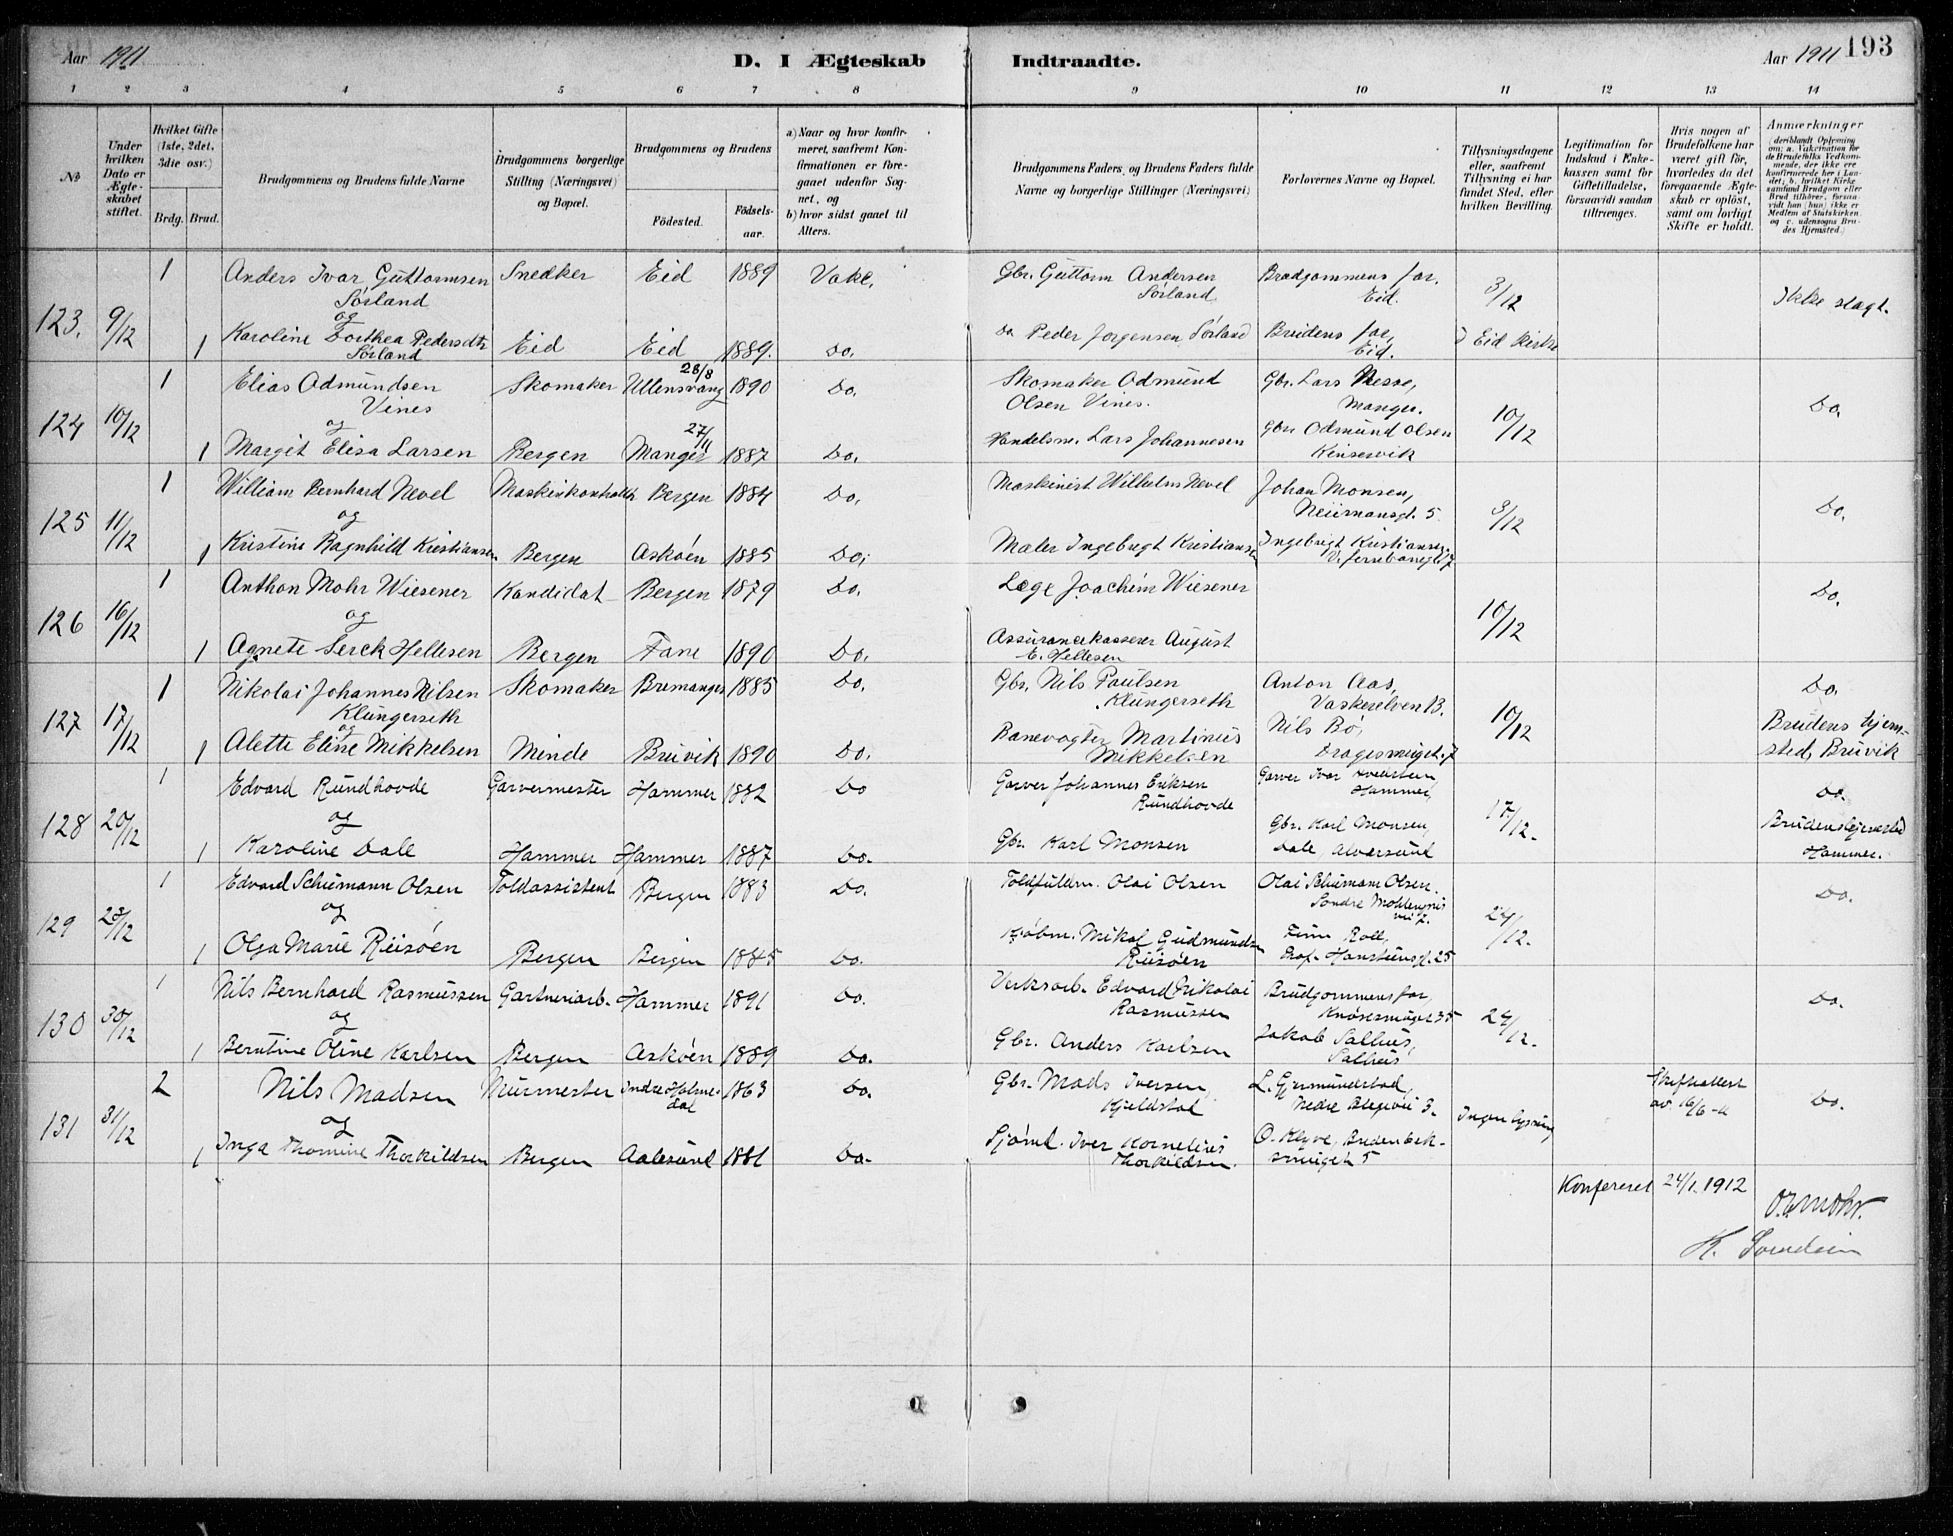 Aar 1911
D. I Ægteskab Indtraadte.
Aar 1911 193
1 2 3 4 5 6 7 8 9 10 11 12 13 14
№
Under hvilken Dato er Ægteskabet stiftet.
Hvilket Gifte (1ste, 2det, 3die osv.)
Brdg. Brud.
Brudgommens og Brudens fulde Navne
Brudgommens borgerlige Stilling (Næringsvei) og Bopæl.
Brudgommens og Brudens
Födested. Födselsaar.
a) Naar og hvor konfirmeret, saafremt Konfirmationen er foregaaet udenfor Sognet, og
b) hvor sidst gaaet til Alters.
Brudgommens Faders og Brudens Faders fulde Navne og borgerlige Stillinger (Næringsvei)
Forlovernes Navne og Bopæl.
Tillysningsdagene eller, saafremt Tillysning ei har fundet Sted, efter hvilken Bevilling.
Legitimation for Indskud i Enkekassen samt for Giftetilladelse, forsaavidt saadan tiltrænges.
Hvis nogen af Brudefolkene har været gift för, hvorledes da det foregaaende Ægteskab er oplöst, samt om lovligt Skifte er holdt.
Anmærkninger (deriblandt Oplysning om: a. Vakcination for de Brudefolks Vedkommende, der ikke ere konfirmerede her i Landet; b. hvilket Kirkesamfund Brudgom eller Brud tilhörer, forsaavidt han (hun) ikke er Medlem af Statskirken, og c. udensogns Brudes Hjemsted.)
123. 9/12 1 Anders Ivar Guttormsen Sörland Snedker Eid 1889 Vake. Gbr. Guttorm Andersen Sörland Brudgommens far, Eid. 3/12 Ikke slagt.
og
1 Karoline Dorthea Pedersdtr Sörland Eid Eid 1889. Do. Do Peder Jorgensen Sörland Brudens far, Eid. i Eid Kirke
124 10/12 1 Elias Odmundsen Vines Skomaker Ullensvang 28/8 1890 Do. Skomaker Odmund Olsen Vines. Gbr. Lars Nesse, Manger. 10/12 Do.
og
1 Margit Elisa Larsen Bergen Manger 27/11 1887 Do. Handelsm. Lars Johannesen Gbr. Odmund Olsen Kinservik
125 11/12 1 William Bernhard Nevel Bergen 1884 Do. Maskinist Wilhelm Nevel Johan Monsen, Neumansgt. 5 3/12 Do.
og
1 Kristine Ragnhild Kristiansen Bergen Askøen 1885 Do. Maler Ingebrigt Kristiansen Ingebrigt Kristiansen
126 16/12 1 Anthon Mohr Wiesener Kandidat Bergen 1879 Do. Læge Joachim Wiesener 10/12 Do.
og
1 Agnete Serck Hellesen Bergen Fane 1890 Do. Assurancekasserer August E. Hellesen
127 17/12 1 Nikolai Johannes Nilsen Klungerseth Skomaker Bremanger 1885 Do. Gbr. Nils Paulsen Klungerseth Anton Aas, Vaskerelven 13. 10/12 Do.
og
1 Alette Eline Mikkelsen Minde Bruvik 1890 Do. Banevogter Martinus Mikkelsen Nils Bö, Dragesmuget 7 Brudens hjemsted, Bruvik
128 20/12 1 Edvard Rundhovde Garvermester Hammer 1882 Do Garver Johannes Eriksen Rundhovde Garver Ivar Hammer, 17/12. Do.
og
1 Karoline Dale Hammer Hammer 1887 Do. Gbr. Karl Monsen Gbr. Karl Monsen, Dale, Alversund Brudens hjemsted Hammer.
129 23/12 1 Edvard Schumann Olsen Toldassistent Bergen 1883 Do. Toldfuldm. Olai Olsen Olai Schumann Olsen. Søndre 24/12. Do.
og
1 Olga Marie Riisöen Bergen Bergen 1885 Do. Købm. Mikal Gudmundsen Riisöen Finn Roll, Prof. Hansteensgt. 25
130 30/12 1 Nils Bernhard Rasmussen Gartneriarb. Hammer 1891 Do. Verksarb. Edvard Nikolai Rasmussen Brudgommens far, Knösesmuget 35 24/12. Do.
og
1 Berntine Oline Karlsen Bergen Askøen 1889 Do. Gbr. Anders Karlsen Jakob Salhus, Salhus
131 31/12 2 Nils Madsen Murmester Indre Holmedal 1863 Do. Gbr. Mads Iversen Kjeldstad L. Gjermundstad, Nedre Blegevei 3. Ingen lysning Skifteattest av 16/6-11 Do.
og
1 Inga Thomine Thorkildsen Bergen Aalesund 1881 Do. Sjömd. Iver Kornelius Thorkildsen. O. Klyve, Bredenbeksmuget 5
Konfereret 24/1. 1912
Mohr.
K.